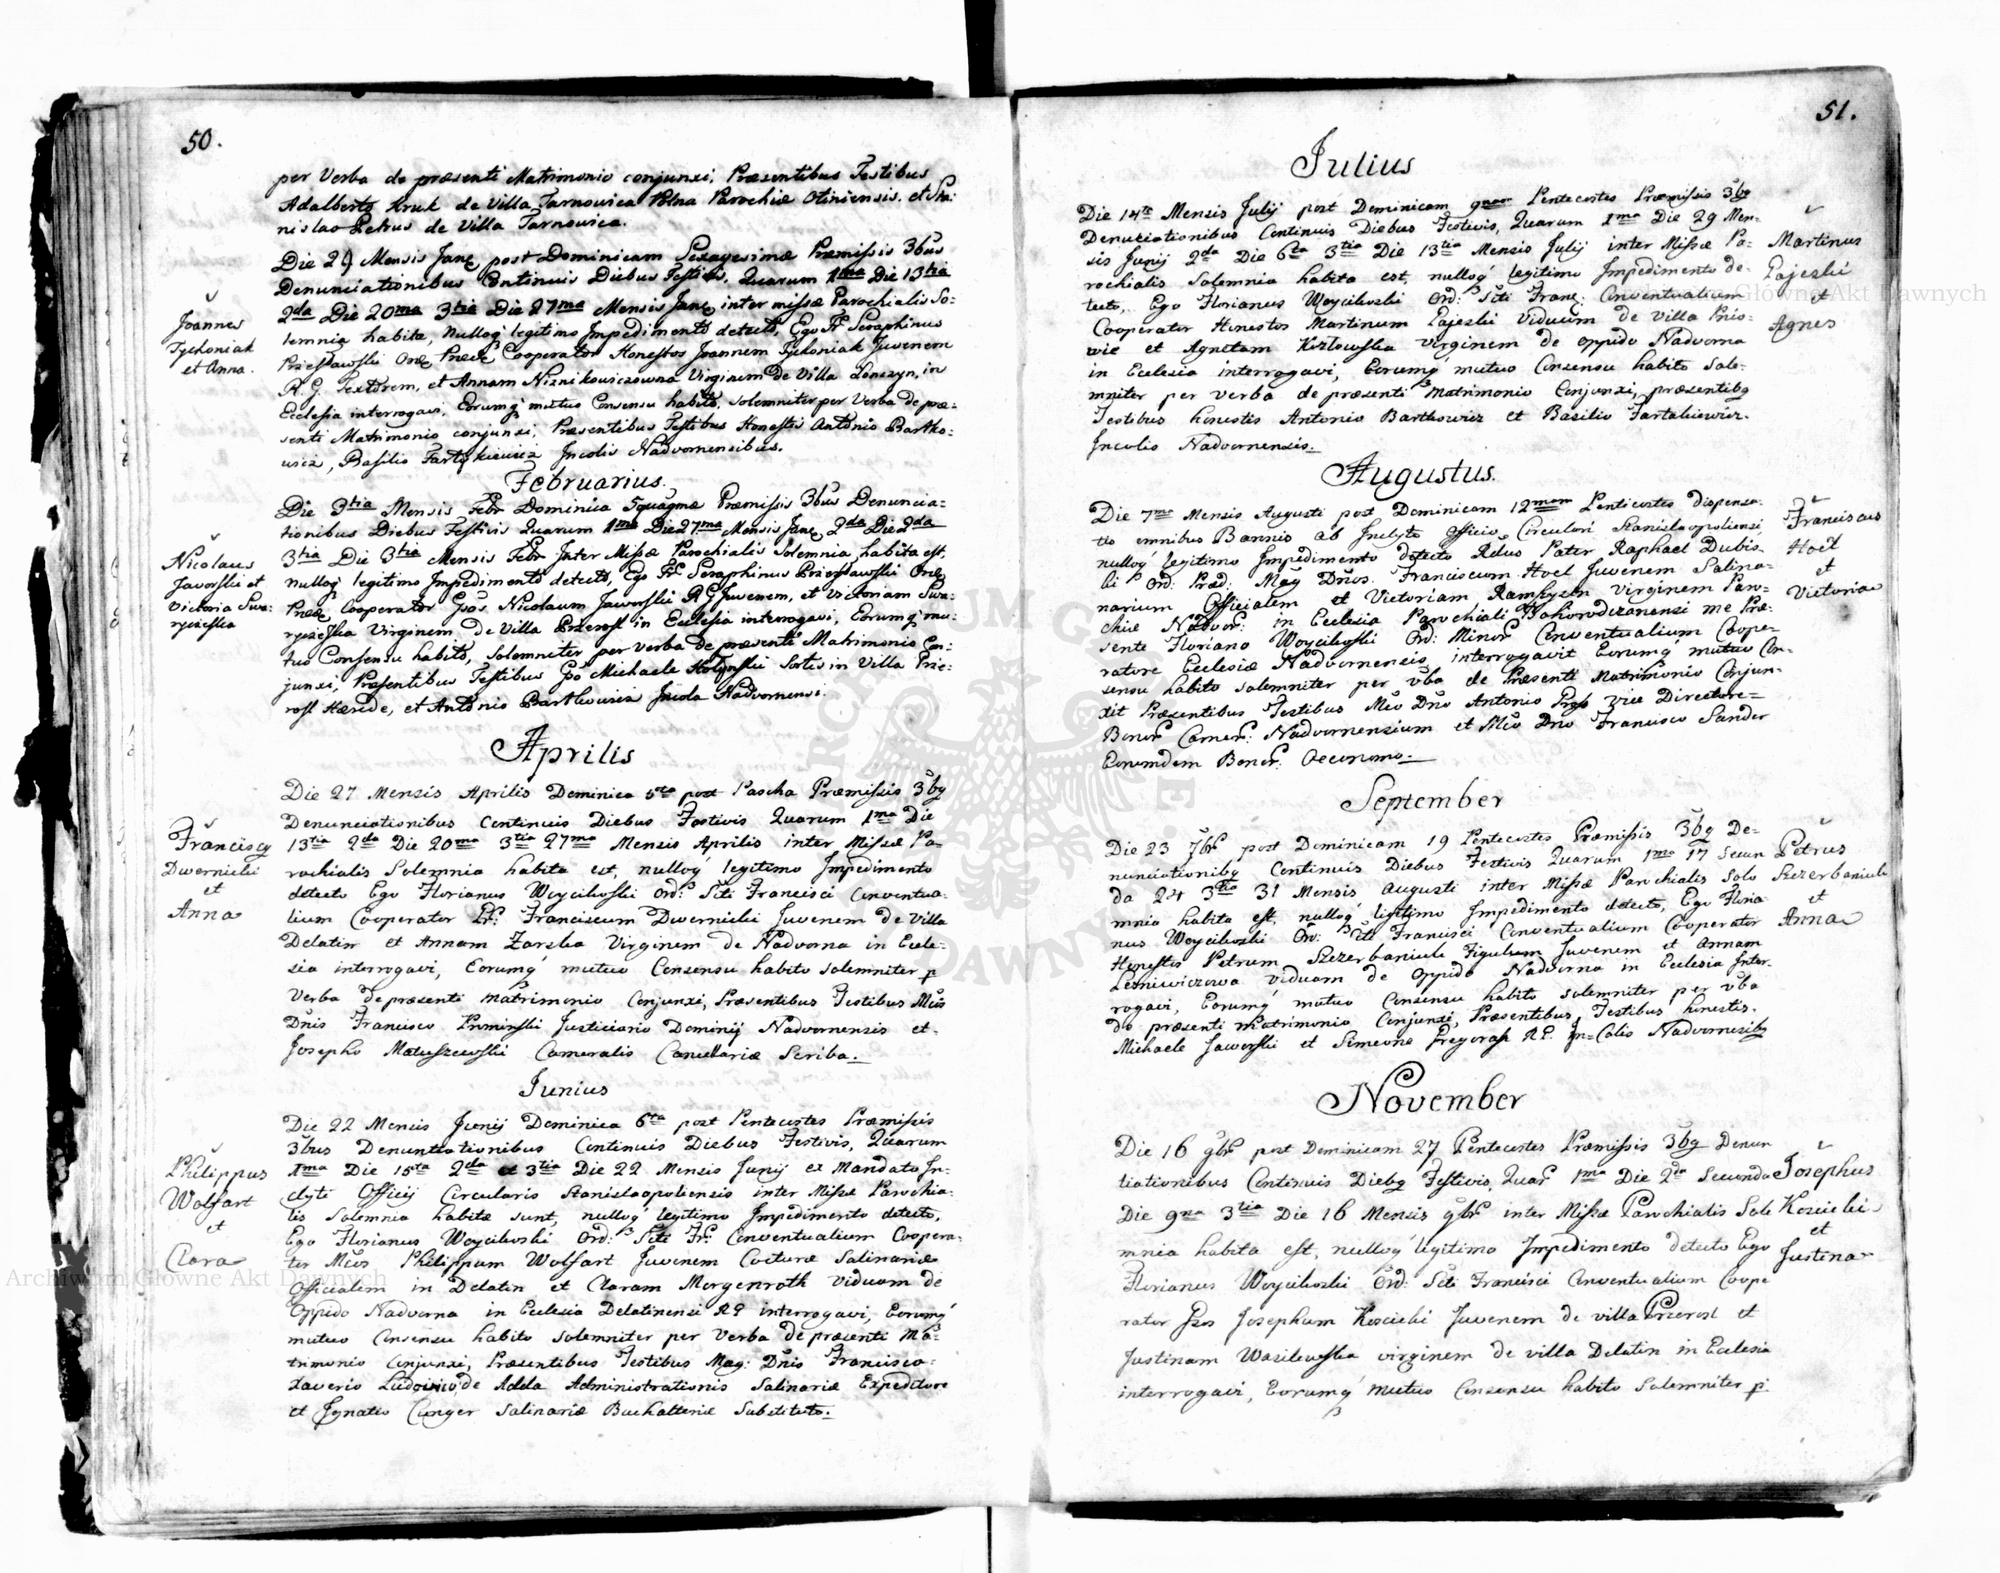 50.
per Verba de præsenti Matrimonio conjunxi, Præsentibus Testibus
Adalberto Kruk de Villa Tarnowica Polna Parochiæ Otiniensis. et Sta:
nislao Petrus de Villa Tarnowica.
Die 29 Mensis Janṛ post Dominicam Sexagesimæ Præmissis 3bus
Denunciationibus Continuis Diebus Festivis, Quarum 1ma Die 13tia
2da Die 20ma 3tia Die 27ma Mensis Janṛ, inter missæ Parochialis So-
lemnia habita, nulloq́ legitimo Impedimento detecto, Ego Fr Seraphinus
Przesławski Cooperator Honestos Joannem Tychoniak Juvenem
R. G. Textorem, et Annam Niznikowiczowna Virginem de Villa Lonczyn, in
Ecclesia interrogavi, Eorumq́ mutuo Consensu habito, solemniter per Verba de præ-
senti Matrimonio conjunxi, Præsentibus Testibus Honestis Antonio Bartko-
wicz, Basilio Jncolis Nadvornensibus.
Joannes
Tychoniak
et Anna.
Februarius.
Die 3tia Mensis Febr Dominica 5quagmæ Præmissis 3bus Denuncia-
tionibus Diebus Festivis Quarum 1ma Die 27ma Mensis Janṛ 2da Die 2da
3tia Die 3tia Mensis Febr Inter Missæ Parochialis Solemnia habita est,
nulloq́ legitimo Impedimento detecto, Ego Fr Seraphinus Przesławski
Cooperator Nicolaum Jaworski R G Juvenem, et Victoriam Swa-
ryczeska Virginem de Villa Przerosl in Ecclesia interrogavi, Eorumq́ mu-
tuo Consensu habito, Solemniter per verba de præsenti Matrimonio Con-
junxi, Præsentibus Testibus Michaele Sortis in Villa Prze-
rosl Hærede, et Antonio Bartkowicz Jncola Nadvornensi.
Nicolaus
Jaworski et
Victoria Swa-
ryczeska
Aprilis
Die 27 Mensis Aprilis Dominica 5ta post Pascha Præmissis 3bq
Denunciationibus Continuis Diebus Festivis Quarum 1ma Die
13tia 2da Die 20ma 3tia 27ma Mensis Aprilis inter Missæ Pa-
rochialis Solemnia habita est, nulloq́ legitimo Impedimento
detecto Ego Florianus Woycikoski Ord: Sti Francisci Conventua-
lium Cooperator Franciscum Dwernicki Juvenem de Villa
Delatin et Annam Zarska Virginem de Nadvorna in Eccle-
sia interrogavi, Eorumq́ mutuo Consensu habito solemniter p
Verba de præsenti matrimonio Conjunxi, Præsentibus Testibus
Dnis Francisco Justiciario Dominij Nadvornensis et
Josepho Matuszewski Cameralis Cancellariæ Scriba.
Franciscq
Dwernicki
et
Anna
Junius
Die 22 Mensis Junij Dominica 6ta post Pentecostes Præmissis
3bus Denuntiationibus Continuis Diebus Festivis, Quarum
1ma Die 15ta 2da et 3tia Die 22 Mensis Junij ex Mandato In-
clyti Officij Circularis Stanislaopoliensis inter Missæ Parochia-
lis Solemnia habitæ sunt, nulloq́ legitimo Impedimento detecto,
Ego Florianus Woycikoski Ord: Sti Fr: Conventualium Coopera-
tor Philippum Wolfart Juvenem Cocturæ Salinariæ
Officialem in Delatin et Claram Morgenroth Viduam de
Oppido Nadvorna in Ecclesia Delatinensi interrogavi, Eorumq́
mutuo Consensu habito solemniter per Verba de præsenti Ma-
trimonio Conjunxi, Præsentibus Testibus Mag: Dnis Francisco
Xaverio Ludovico de Adda Administrationis Salinariæ Expeditore
et Ignatio Cunger Salinariæ Buchalteriæ Substituto.
Philippus
Wolfart
et
Clara
51.
Julius
Die 14ta Mensis Julij post Dominicam 9nam Pentecostes Præmissis 3bq
Denunciationibus Continuis Diebus Festivis, Quarum 1ma Die 29 Men-
sis Junij 2da Die 6ta 3tia Die 13tia Mensis Julij inter Missæ Pa-
rochialis Solemnia habita est, nulloq́ legitimo Impedimento de-
tecto, Ego Florianus Woycikoski Ord: Sti Franc: Conventualium
Cooperator Honestos Martinum Pajeski Viduum de Villa Pnio-
wie et Agnetam Kozlowska virginem de oppido Nadvorna
in Ecclesia interrogavi, Eorumq́ mutuo Consensu habito Sole-
mniter per verba de præsenti Matrimonio Conjunxi, præsentibq
Testibus honestis Antonio Bartkowicz et Basilio Fartakiewicz
Jncolis Nadvornensis.
Martinus
Pajeski
et
Agnes
Augustus.
Die 7ma Mensis Augusti post Dominicam 12mam Penticostes dispensa-
tis omnibus Bannis ab Inclyto Officio Circulari Stanislaopoliensi
nulloq́ legitimo Impedimento detecto Rdus Pater Raphael Dubis-
ki Ord: Præd: Mag Dnos. Franciscum Hoel Juvenem Salina-
narium Officialem et Victoriam Virginem Paro-
chiæ Nadvor: in Ecclesia Parochiali Bohorodczanensi me Præ-
sente Floriano Woycikoski Ord: Minor Conventualium Coope-
ratore Ecclesiæ Nadvornensis, interrogavit Eorumq́ mutuo Con-
sensu habito solemniter per vba de Præsenti Matrimonio Conjun-
xit Præsentibus Testibus Dno Antonio vice Directore
Bonor Camer: Nadvornensium et Dno Francisco Sander
Eorumdem Bonor: Oeconomo.
Franciscus
Hoel
et
Victoria
September
Die 23 7br post Dominicam 19 Pentecostes Præmissis 3bq De-
nunciationibq Continuis Diebus Festivis Quarum 1ma 17 Secun
da 24 3tia 31 Mensis Augusti inter Missæ Parochialis Sole
mnia habita est, nulloq́ legitimo Impedimento detecto, Ego Floria
nus Woycikoski Ord: Sti Francisci Conventualium Cooperator
Honestos Petrum Szczerbaniuk Figulum Juvenem et Annam
Lesniewiczowa viduam de Oppido Nadvorna in Ecclesia Inter-
rogavi, Eorumq́ mutuo Consensu habito solemniter per vba
de præsenti matrimonio Conjunxi, Præsentibus Testibus honestis.
Michaele Jaworski et Simeone In-Colis Nadvornesibq
Petrus
Szczerbaniuk
et
Anna
November
Die 16 9br post Dominicam 27 Pentecostes Præmissis 3bq Denun
tiationibus Continuis Diebq Festivis, Quar 1ma Die 2da Secunda
Die 9na 3tia Die 16 Mensis 9br inter Missæ Parochialis Sole
mnia habita est, nulloq́ legitimo Impedimento detecto Ego
Florianus Woycikoski Ord: Sti Francisci Conventualium Coope
rator Josephum Koscicki Juvenem de villa Przerosl et
Justinam Wasilewska virginem de villa Delatin in Ecclesia
interrogavi, Eorumq́ mutuo Consensu habito Solemniter p.
Josephus
Koscicki
et
Justina
Archiwum Główne Akt Dawnych
Archiwum Główne Akt Dawnych
ARCHIWUM GŁÓWNE AKT DAWNYCH